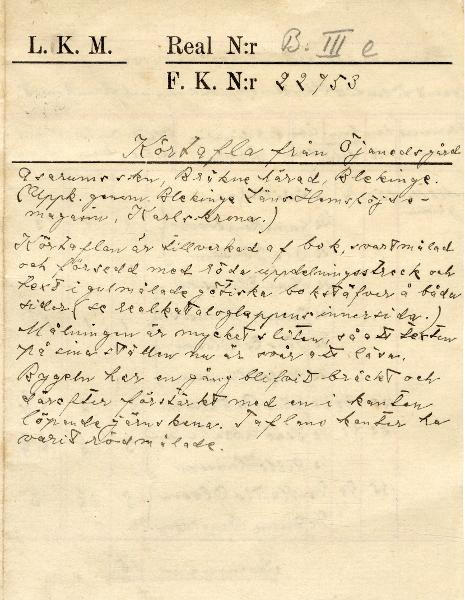 L. K. M. Real N:r B. III e
F. K. N:r 22753
Körtafla från Öjanedsgård
Asarums skn, Bräkne härad, Blekinge.
(Uppk. genom Blekinge Läns Hemslöjds-
magasin, Karlskrona.)
Körtaflan är tillverkad af bok, svartmålad
och försedd med röda uppdelningsstreck och
text i gulmålade götiska bokstäfver å båda
sidor (se realkatalogslappens innersida.)
Målningen är mycket sliten, så att texten
på sina ställen nu är svår att läsa.
Bygeln har en gång blifvit bräckt och
därefter förstärkt med en i kanten
löpande järnskena. Taflans kanter ha
varit rödmålade.